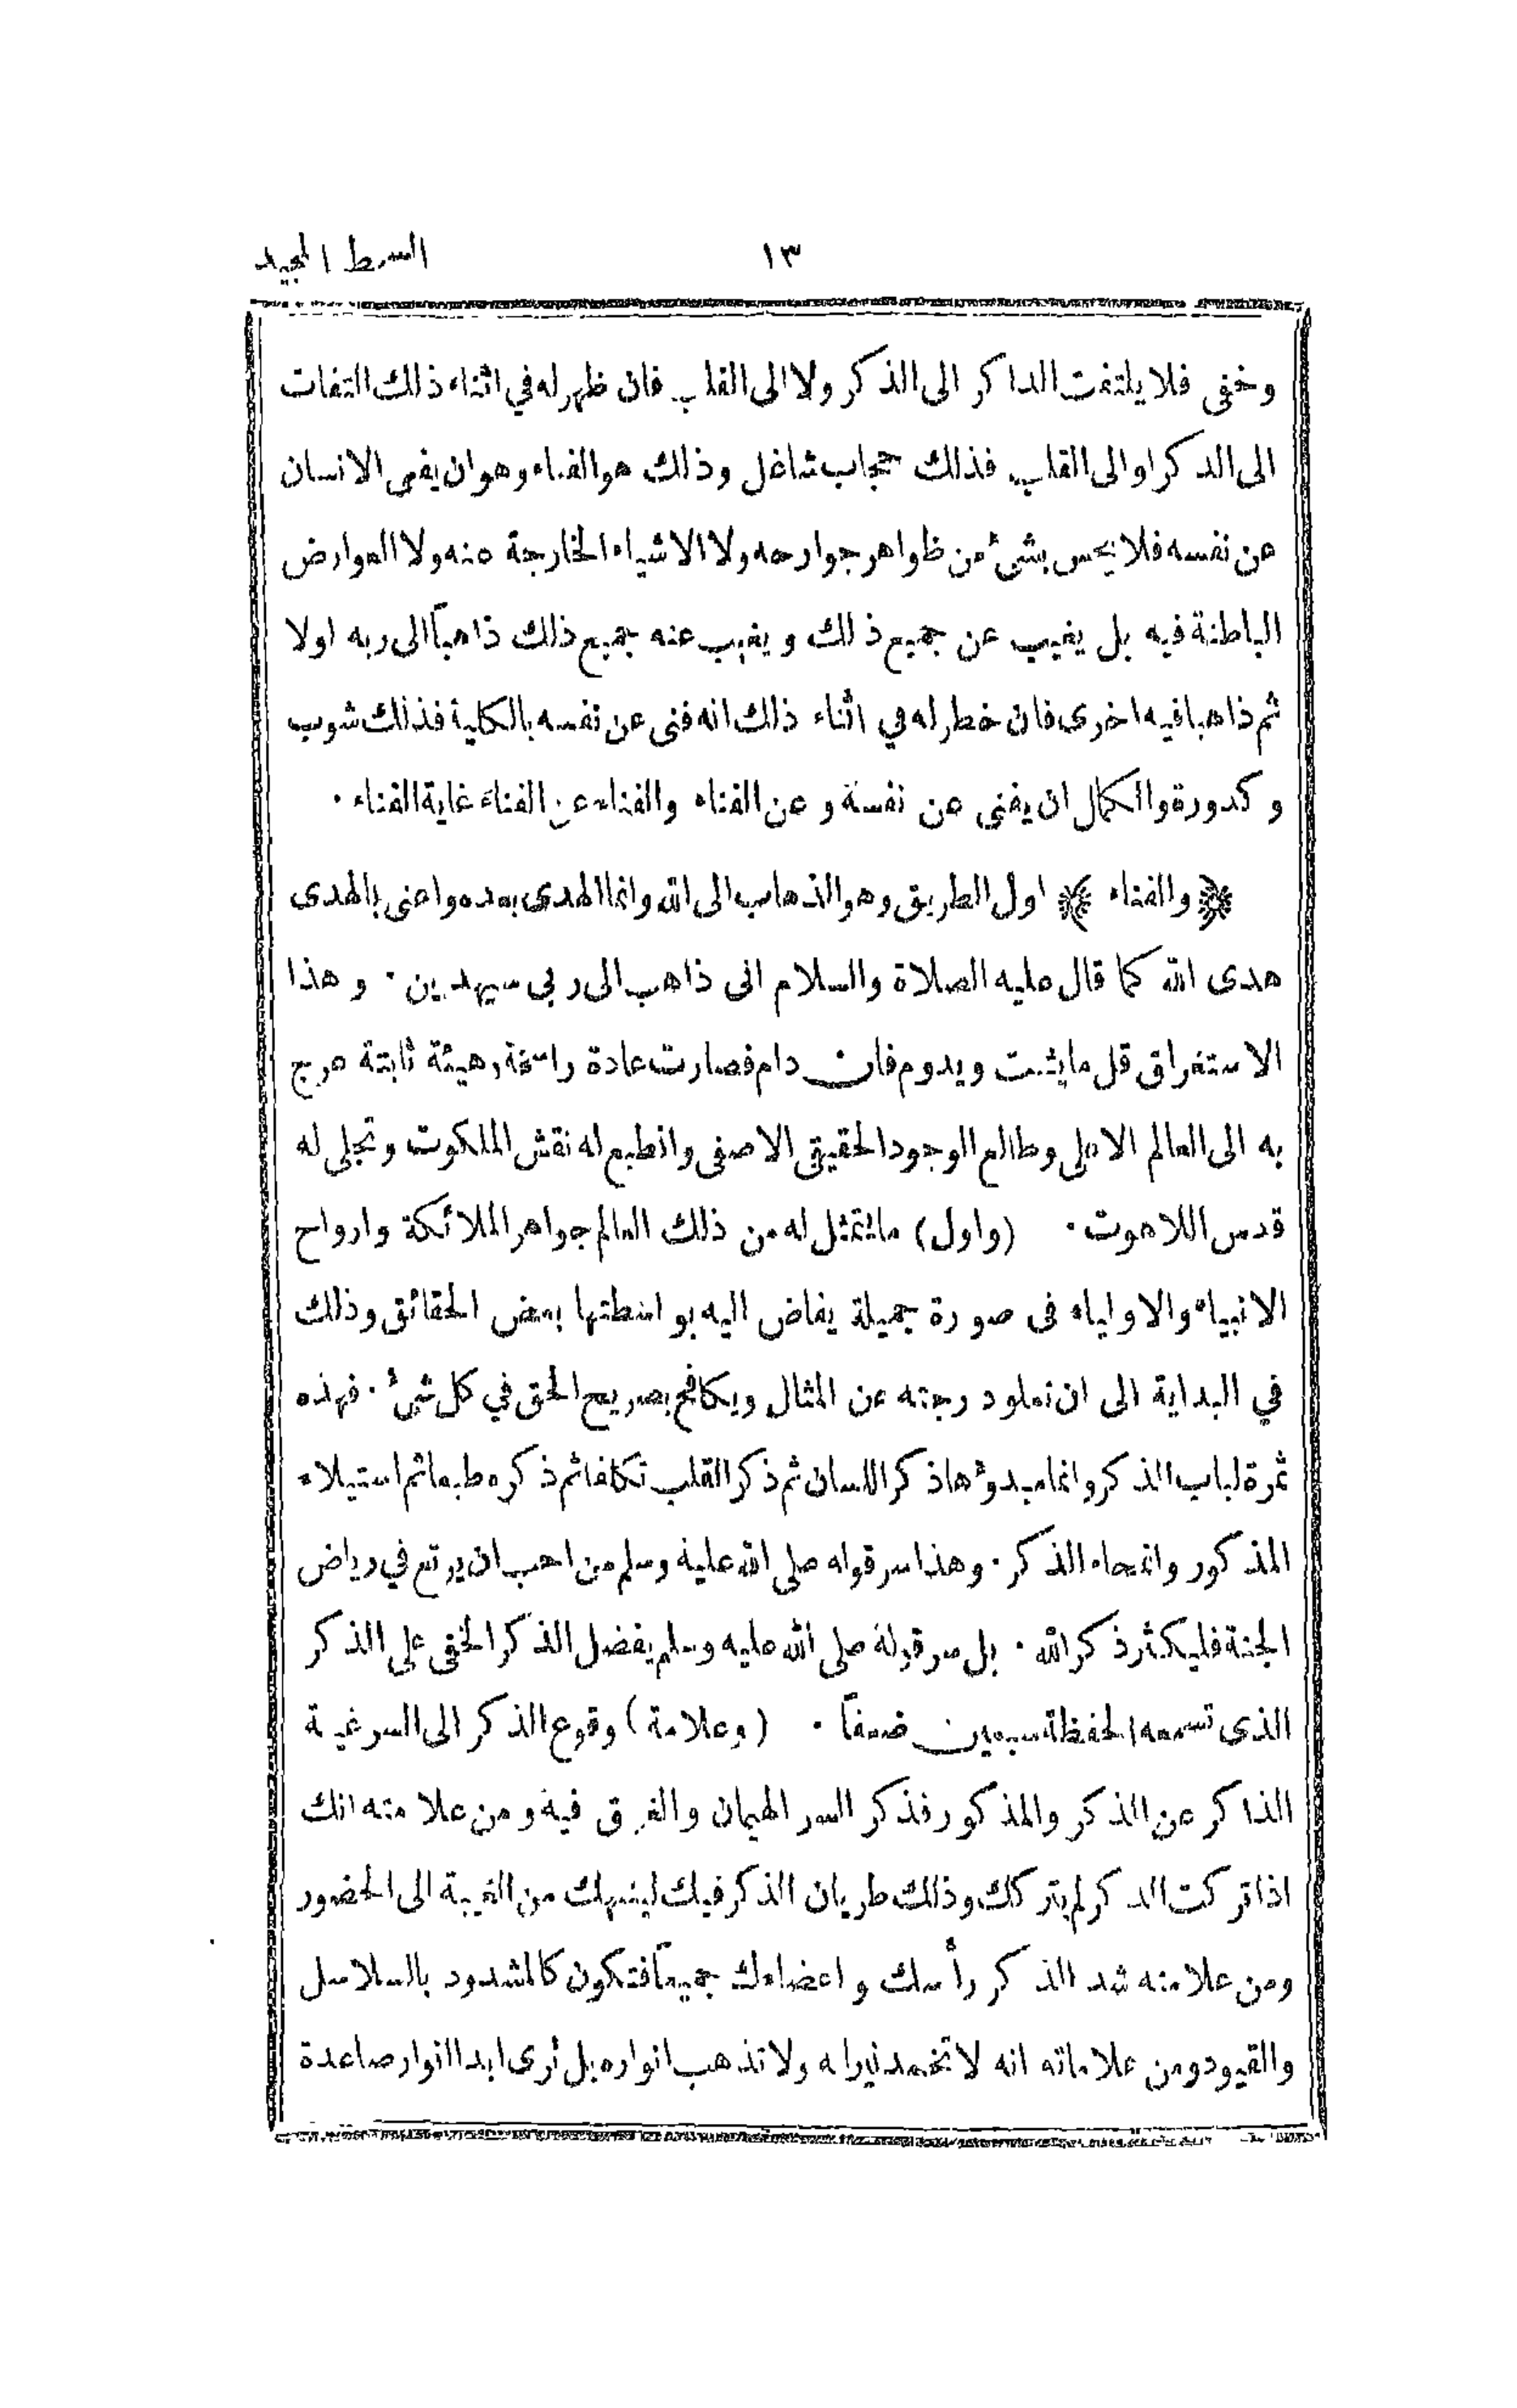 ١٣
السمط المجيد
وخفى فلا يلتفت الذاكر الى الذكر ولا الى القلب فان ظهر له في اثناء ذلك التفات
الى الذكر او الى القلب فذلك حجاب شاغل وذلك هو الفناء وهو ان يفنى الانسان
عن نفسه فلا يحس بشئ من ظواهر جوارحه ولا الاشياء الخارجة عنه ولا العوارض
الباطنة فيه بل يغيب عن جميع ذلك ويغيب عنه جميع ذلك ذاهباً الى ربه اولا
ثم ذاهبا فيه اخرى فان خطر له في اثناء ذلك انه فنى عن نفسه بالكلية فذلك شوب
وكدورة والكمال ان يفنى عن نفسه وعن الفناء والفناء عن الفناء غاية الفناء ·
﴿ والفناء ﴾ اول الطريق وهو الذهاب الى الله وانما الهدى بعده واعنى بالهدى
هدى الله كما قال عليه الصلاة والسلام انى ذاهب الى ربي سيهدين · وهذا
الاستغراق قل ما يثبت ويدوم فان دام فصارت عادة راسخة وهيئة ثابتة عرج
به الى العالم الاعلى وطالع الوجود الحقيقي الاصفى وانطبع له نقش الملكوت وتجلى له
قدس اللاهوت · (واول) ما يتمثل له من ذلك العالم جواهر الملائكة وارواح
الانبياء والاولياء فى صورة جميلة يفاض اليه بواسطتها بعض الحقائق وذلك
في البداية الى ان تعلو درجته عن المثال ويكافح بصريح الحق في كل شئ · فهذه
ثمرة لباب الذكر وانما مبدؤها ذكر اللسان ثم ذكر القلب تكلفا ثم ذكره طبعا ثم استيلاء
المذكور وانمحاء الذكر · وهذا سر قوله صلى الله عليه وسلم من احب ان يرتع في رياض
الجنة فليكثر ذكر الله · بل سر قوله صلى الله عليه وسلم يفضل الذكر الخفى على الذكر
الذى تسمعه الحفظة سبعين ضعفاً · (وعلامة) وقوع الذكر الى السر غيبة
الذاكر عن الذكر والمذكور فذكر السر الهيمان والغرق فيه ومن علامته انك
اذا تركت الذكر لم يتركك وذلك طريان الذكر فيك لينبهك من الغيبة الى الحضور
ومن علامته شد الذكر رأسك واعضاءك جميعاً فتكون كالمشدود بالسلاسل
والقيود ومن علاماته انه لا تخمد نيرانه ولا تذهب انواره بل ترى ابدا انوار صاعدة